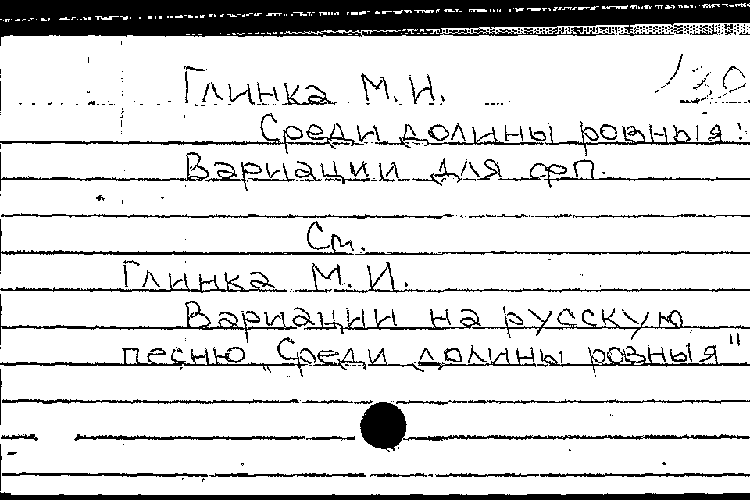 Глинка М.И. 130
Среди долины ровныя:
Вариации для фп.
См.
Глинка М.И.
Вариации на русскую
песню „Среди долины ровныя"